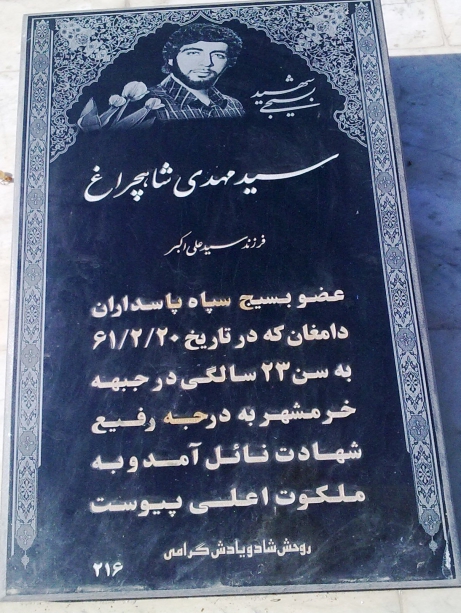 شهید
بسیجی
سید مهدی شاهچراغ
فرزند سید علی اکبر
عضو بسیج سپاه پاسداران
دامغان که در تاریخ ۶۱/۲/۲۰
به سن ۲۳ سالگی در جبهه
خرمشهر به درجه رفیع
شهادت نائل آمد و به
ملکوت اعلی پیوست
روحش شاد و یادش گرامی
۲۱۶